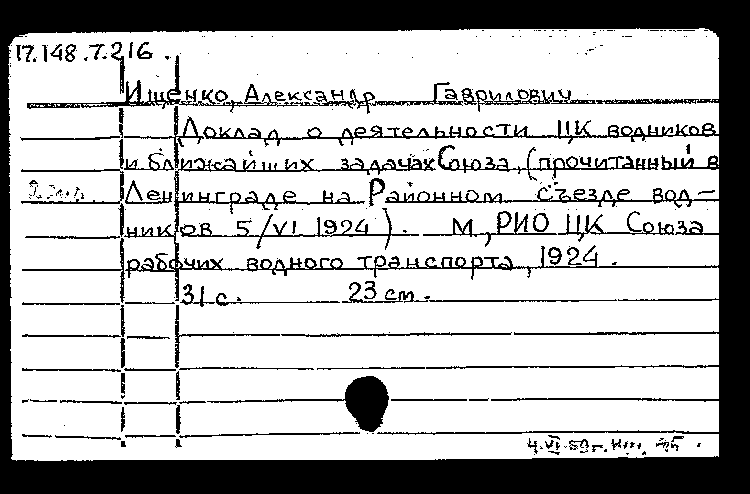 17.148.7.216.
Ищенко, Александр Гаврилович
Доклад о деятельности ЦК водников
и ближайших задачах Союза, (прочитанный в
2 экз. Ленинграде на Районном съезде вод-
ников 5/VI 1924). М, РИО ЦК Союза
рабочих водного транспорта, 1924.
31 с. 23 cm.
4.VI.59г.